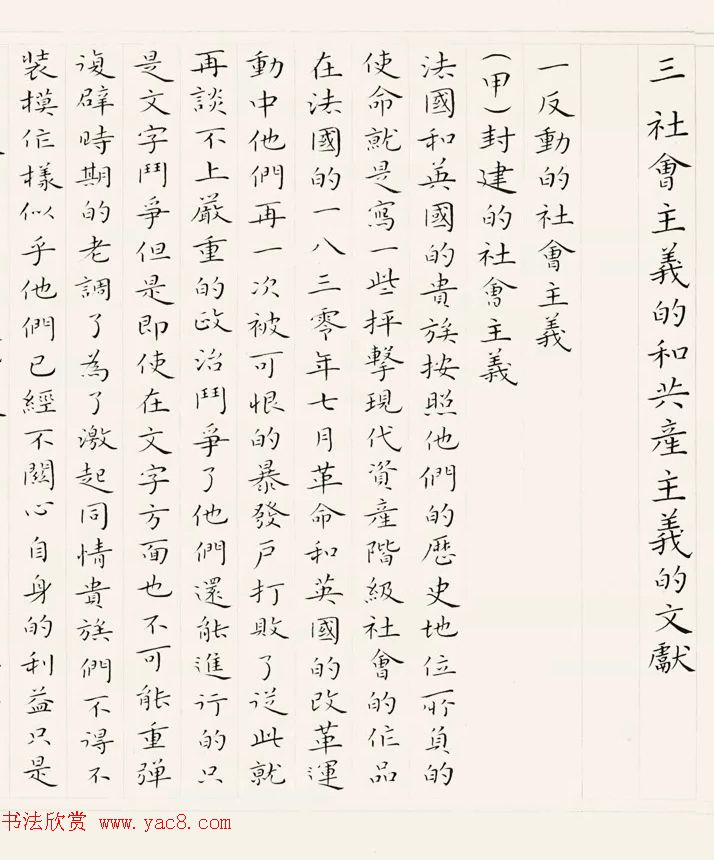 三 社會主義的和共產主義的文獻
一反動的社會主義
(甲)封建的社會主義
法國和英國的貴族按照他們的歷史地位所負的
使命就是寫一些抨擊現代資產階級社會的作品
在法國的一八三零年七月革命和英國的改革運
動中他們再一次被可恨的暴發戶打敗了從此就
再談不上嚴重的政治鬥爭了他們還能進行的只
是文字鬥爭但是即使在文字方面也不可能重彈
復辟時期的老調了為了激起同情貴族們不得不
裝模作樣似乎他們已經不關心自身的利益只是
书法欣赏 www.yac8.com